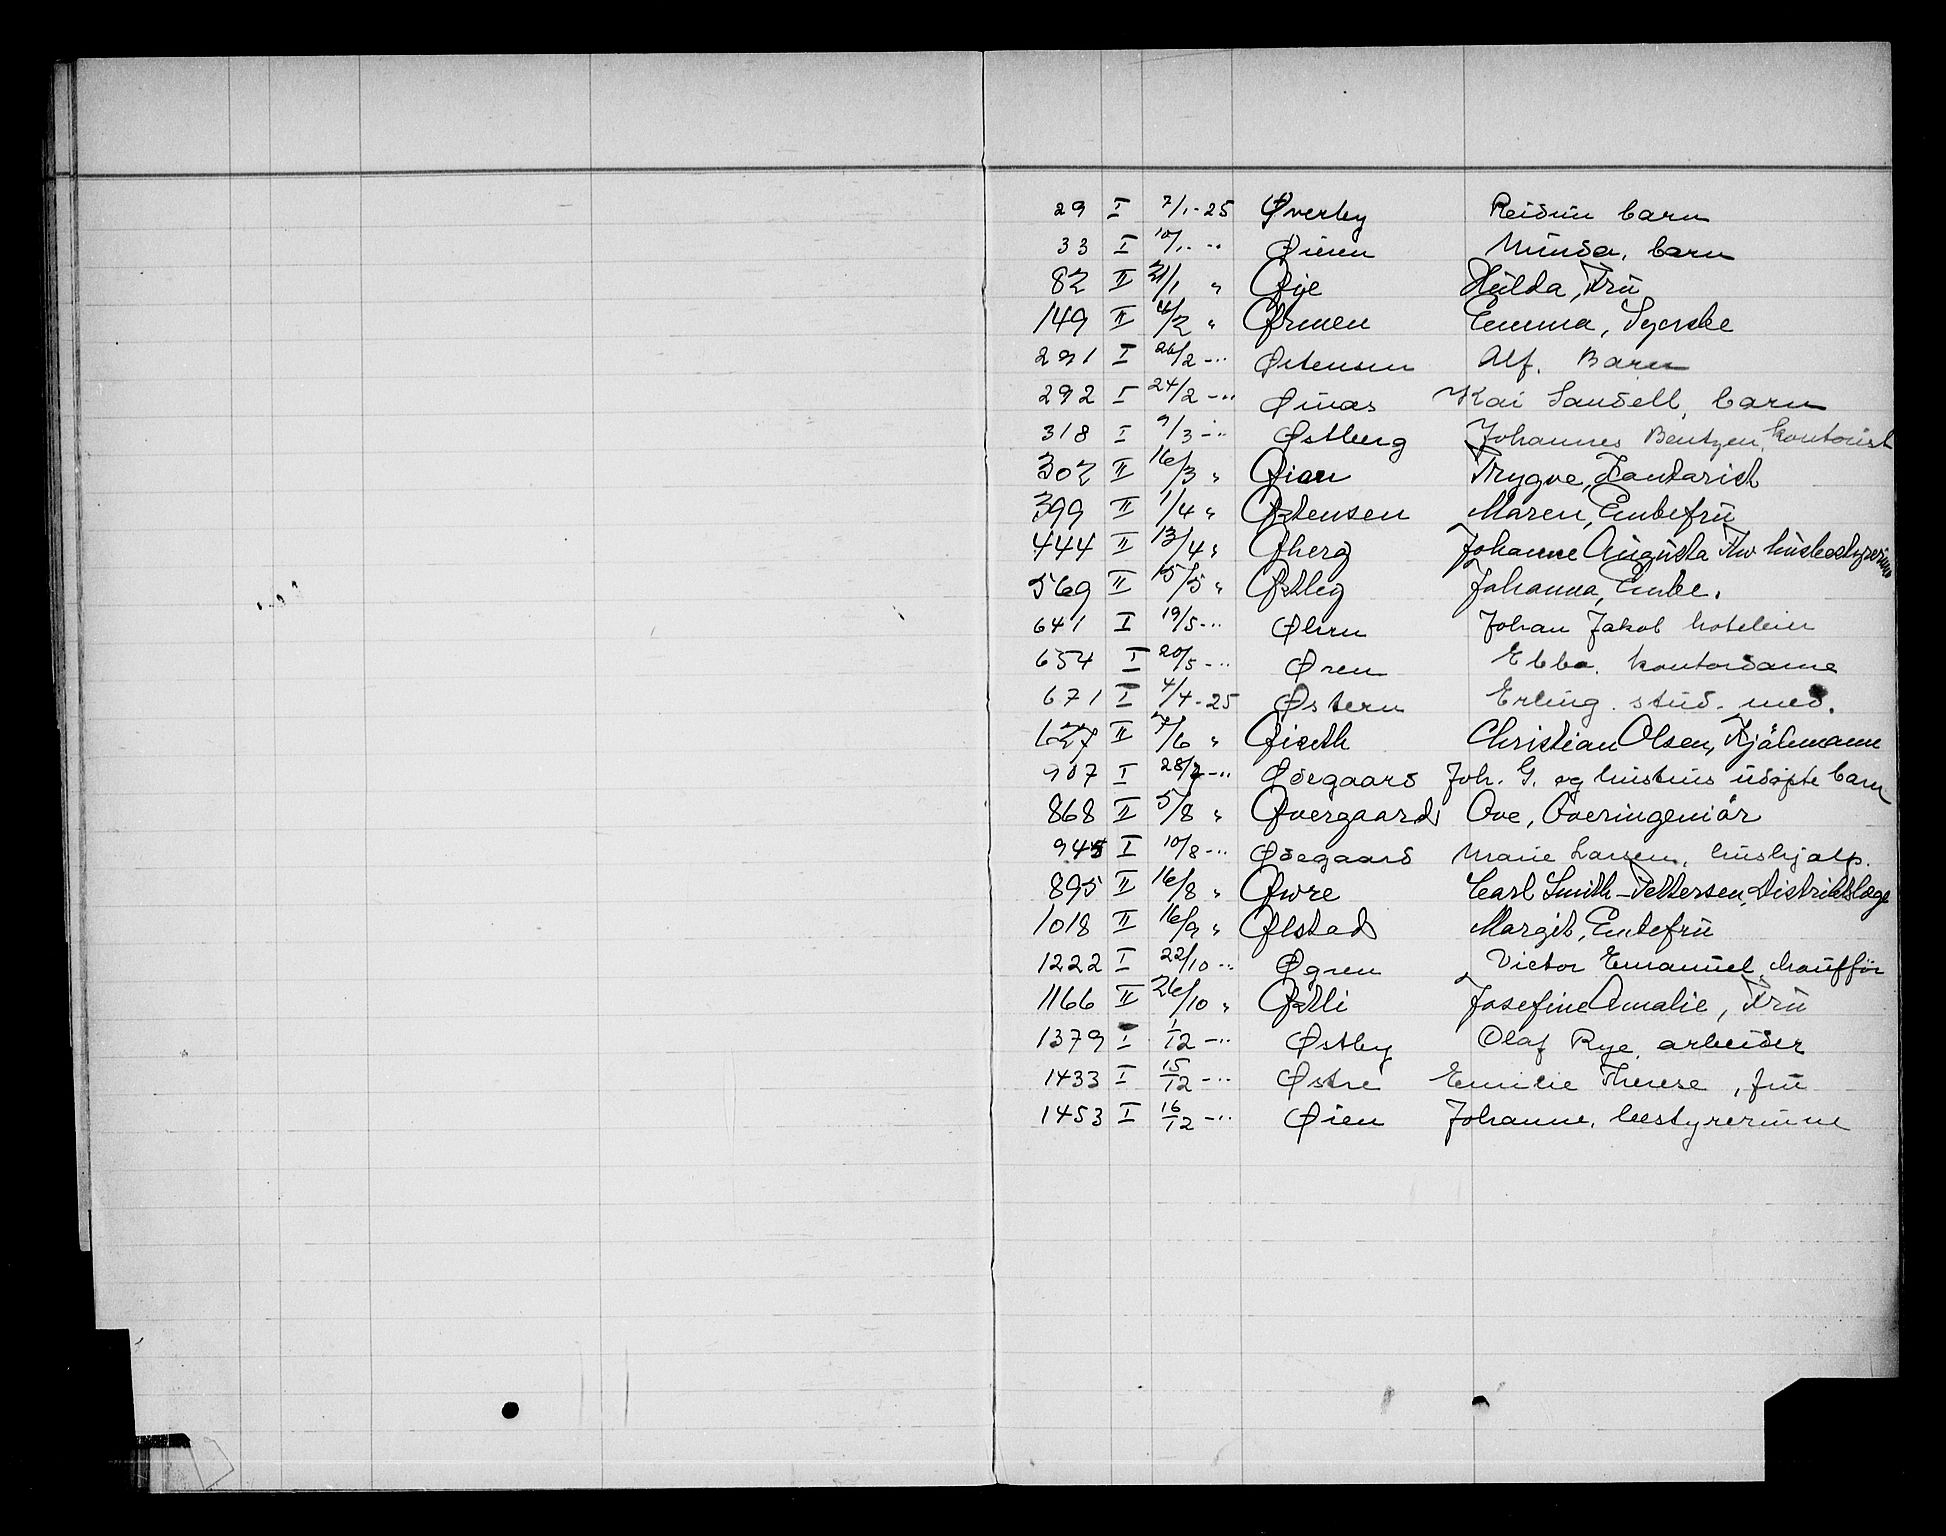 29 I 7/1-25 Øverby Reidun barn
33 I 10/1 -" Øien Munda, barn
82 II 21/1 " Øye Hulda, Fru
149 II 16/2 " Ørmen Emma, Syerske
291 I 26/2 -" Østensen Alf. Barn
292 I 24/2 -" Øinæs Kai Sandell, barn
318 I 9/3 -" Østberg Johannes Bentzen, kontorist
302 II 16/3 " Øien Trygve, Kontorist
399 II 1/4 " Østensen Maren, Enkefru
444 II 13/4 " Øberg Johanne Augusta Fhv husbestyrerinne
569 II 15/5 " Østby Johanna, Enke.
641 I 19/5 -" Øhrn Johan Jakob hoteleier
654 I 20/5 -" Øren Ebba. kontordame
671 I 4/4-25 Østern Erling. stud. med.
627 II 7/6 " Øiseth Christian Olsen, Sjömann
907 I 28/7 -" Ødegaard Joh. G. og hustrus udøpte barn
868 II 5/8 " Øvergaard Ove, Overingeniör
945 I 10/8 -" Ødegaard Marie Larsen, hushjælp.
895 II 16/8 " Øwre Carl Smith-Pettersen, Distriktslæge
1018 II 16/9 " Ølstad Margit, Enkefru
1222 I 22/10 -" Øgren Victor Emanuel, chaufför
1166 II 26/10 " Østli Josefine Amalie, Fru
1379 I 1/12 -" Østby Olaf Rye. arbeider
1433 I 15/12 -" Østre Emilie Therese, fru
1453 I 16/12 -" Øien Johanne, bestyrerinne